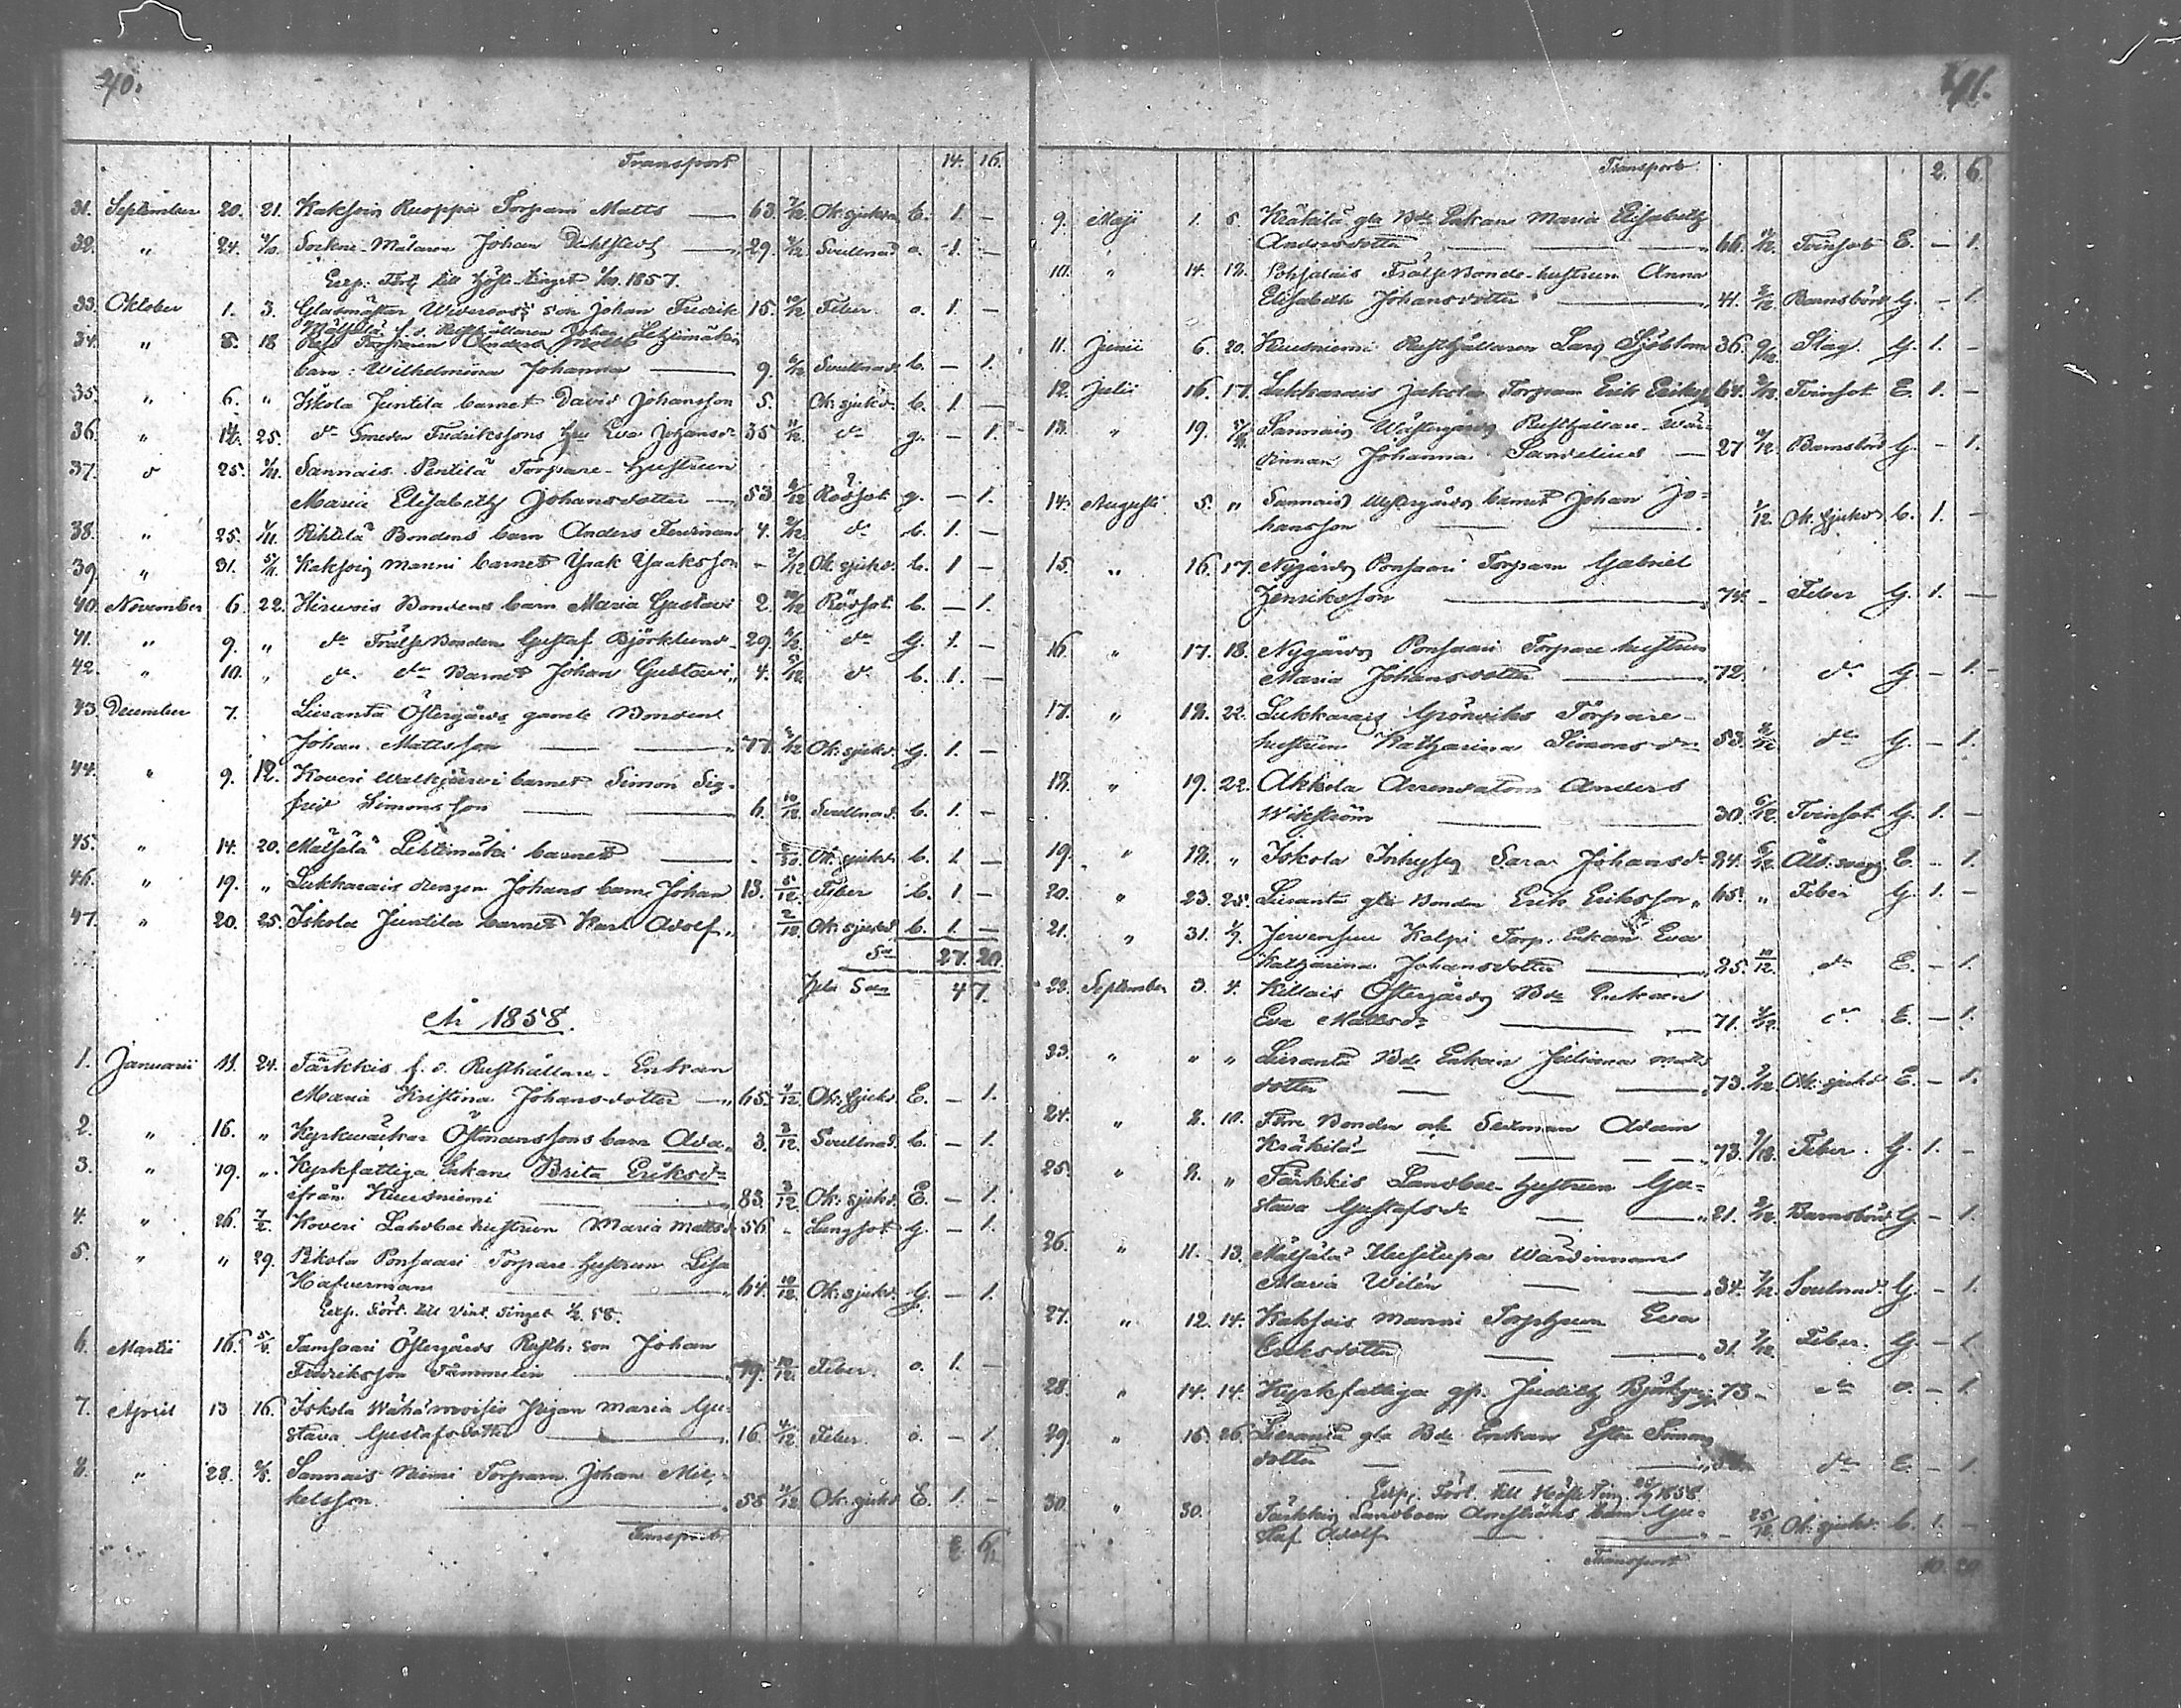 40.
Transport 14. 16.
31. September 20. 21. Kaksois Ruoppa Torparn Matts — 63. 7/12 Ok. sjukd. C. 1. —
32. " 24. 4/10. Sockne-Målaren Johan Dahlstedt — 29. Svullnad o. 1. —
Exp. Fört. till Höste-tinget 1/10. 1857.
33. Oktober 1. 3. Glasmästar son Johan Fredrik 15. 10/12 Feber o. 1. —
Mälsälä f. d. Rusthållaren Johan Lehtimäkis
34. " 5. 18 Torparen Anders
barn: Wilhelmina Johanna — 9. 6/12 Svullnad. b. — 1.
35. " 6. " Iskola Juntila barnet David Johansson 5. Ok. sjukd. b. 1. —
36. " 14. 25. do Smeden Fredrikssons hu Eva Johansdr 35 11/12 do g. — 1.
37. " 25. 1/11. Sannais Pentilä Torpare-Hustrun
Maria Elisabeth Johansdotter — 53. 6/12 Rödsot g. — 1.
38. " 25. 1/11. Rihtilä Bondens barn Anders Ferdinand 4. 2/12 do b. 1. —
39. " 31. 5/11. Kaksois Manni barnet Isaak Isaaksson - 2/12 Ok. sjukd. b. 1 —
40. November 6. 22. Hirvois Bondens barn Maria Gustava 2. 10/12 Rödsot b. — 1.
41. " 9. " do Frälse Bonden Gustaf Björklund 29. 6/12 do G. 1. —
42. " 10. " do do Barnet Johan Gustavi " 4. 5/12 do b. 1. —
43. December 7. Liesanta Östergårds gamle Bonden
Johan Mattsson — — 77. 4/12 Ok. sjukd. G. 1. —
44. " 9. 12. Koveri Walkjärvi barnet Simon Sig-
frid Simonsson — 6. 10/12 Svullnad. b. 1. —
45. " 14. 20. Mälsälä Lehtimäki barnet — - Ok. sjukd. b. 1. —
46. " 19. " Lukkarais drengen Johans barn Johan 13. 5/12 Feber b. 1 —
47. " 20. 25. Iskola Juntila barnet Karl Adolf " 2/12 Ok. sjukd. b. 1. —
Sa 27. 20.
Hela San 47.
År 1858.
1. Januarii 11. 24. Tärkkis f. d. Rusthållare-Enkan
Maria Kristina Johansdotter — " 65. 4/12 Ok. sjukd. E. — 1.
2. " 16. " Kyrkväktar Östmanssons barn Ada " 3. 3/12 Svullnad. b. — 1.
3. " 19. " Kyrkfattiga Enkan Brita Eriksdr
ifrån Kuusniemi — 83. 3/12 Ok. sjukd. E. — 1.
4. " 26. 7/2. Koveri Landboe hustrun Maria Mattsdr 56 - Lungsot g. — 1.
5. " " 29. Pekola Ponsaari Torpare-Hustrun Lisa
Hafverman — 64. 10/12 Ok. sjukd. G. — 1.
Exp. Fört. till Vint. Tinget 1/2. 58.
6. Martii 16. 5/4. Tamsaari Östergårds Rusth. son Johan
Fredriksson Tammelin — 19. 10/12 Feber. o. 1. —
7. April 13 16. Iskola Wähäruoisio Pigan Maria Gu-
stava Gustafsdotter — 16. 4/12 Feber. o. — 1.
8. " 28. 2/5. Sannais Niemi Torparn Johan Mic-
kelsson. — 55 11/12 Ok. sjukd. E. 1. —
Transport 2. 6.
41.
Transport 2. 6.
9. Maji 1. 5. Kräkilä gla Bde Enkan Maria Elisabeth
Andersdotter — — 66. 11/12. Tvinsot E. — 1.
10. " 14. 18. Pohjalais Frälse Bonde-hustrun Anna
Elisabeth Johansdotter — 41. 2/12 Barnsbörd G. — 1.
11. Junii 6. 20. Kuusniemi Rusthållaren Lars Sjöblom 36. 9/12 Slag. G. 1. —
12. Julii 16. 17. Lukkarais Jakola Torparn Erik Eriksson 64. 2/12 Tvinsot E. 1. —
13. " 19. Sannais Wästergårds Rusthållare-wär-
dinnan Johanna Sandelius — 27 11/12. Barnsbörd G. — 1.
14. Augusti 5. " Sannais Westergårds barnet Johan Jo-
hansson — — 1/12. Ok. sjukd. b. 1. —
15. " 16. 17. Nygårds Ponsaari Torparn Gabriel
Henriksson — 74. - Feber G. 1. —
16. " 17. 18. Nygårds Ponsaari Torpare hustrun
Maria Johansdotter — 72. do G. — 1.
17. " 18. 22. Lukkarais Grönviks Torpare-
hustrun Katharina Simonsdr 53. 8/12 do G. — 1.
18. " 19. 22. Akkola Arrendatorn Anders
Wikström — — 30. 6/12. Tvinsot G. 1. —
19. " 18. " Iskola Inhyses Sara Johansdr 84. 6/12. Åld. svag. E. — 1.
20. " 23. 25. Liesanta gla Bonden Erik Eriksson " 65. " Feber G. 1. —
21. " 31. Jervensuu Kalpi Torp. Enkan Eva
Katharina Johansdotter — 85. 10/12. do E. — 1.
22. September 3. 4. Killais Östergårds Bde Enkan
Eva Mattsdr — — 71. 4/12. do E. — 1.
23. " " " Liesanta Bde Enkan Juliana Matts-
dotter — — 73. 2/12 Ok. sjukd. E. — 1.
24. " 8. 10. Förre Bonden och Sexman Adam
Kräkilä — — 73. 1/12. Feber. G. 1. —
25. " 8. " Tärkkis Landboe-Hustrun Gu-
stava Gustafsdr — — " 21. 2/12. Barnsbörd G. — 1.
26. " 11. 13. Mälsälä Uusitupa Wärdinnan
Maria Wilén — — 34. 7/12. Svullnad. G. — 1.
27. " 12. 14. Kaksois Manni Torphun Eva
Eriksdotter — — 31. 7/12. Feber. G. — 1.
28. " 14. 14. Kyrkfattiga gp. Judith 73 - do o. — 1.
29. " 15. 26. Liesanta gla Bde Enkan Ester Simons
dotter — — do E. — 1.
Exp. Fört. till Höste Ting 1858.
30. " 30. Tärkkis Landboen barn Gu-
staf Adolf — — " - 25/12. Ok. sjukd. b. 1. —
Transport 10. 20